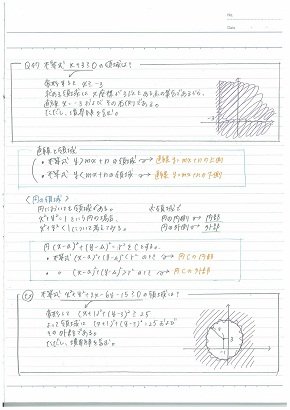 No.
Date
Q47 不等式 x+3≧0 の領域は?
変形すると x≧-3
求める領域は x座標が-3以上である点の集合であるから、
直線 x=-3 および その右側である。
ただし、境界線を含む。
-3
直線と領域
・不等式 y>mx+n の領域 → 直線 y=mx+n の上側
・不等式 y<mx+n の領域 → 直線 y=mx+n の下側
〈円の領域〉
円においても領域がある。
x²+y²=1 という円の場合、 円の内側 → 内部
x²+y²<1 について考えてみる。 円の外側 → 外部
円 (x-a)²+(y-b)²=r² をCとする。
・不等式 (x-a)²+(y-b)²<r² のとき → 円Cの内部
・ 〃 (x-a)²+(y-b)²>r² のとき → 円Cの外部
不等式 x²+y²+2x-6y-15≧0 の領域は?
変形して (x+1)²+(y-3)²≧25
よって領域は (x+1)²+(y-3)²=25 および
その外部である。
ただし、境界線を含む。
3
-1